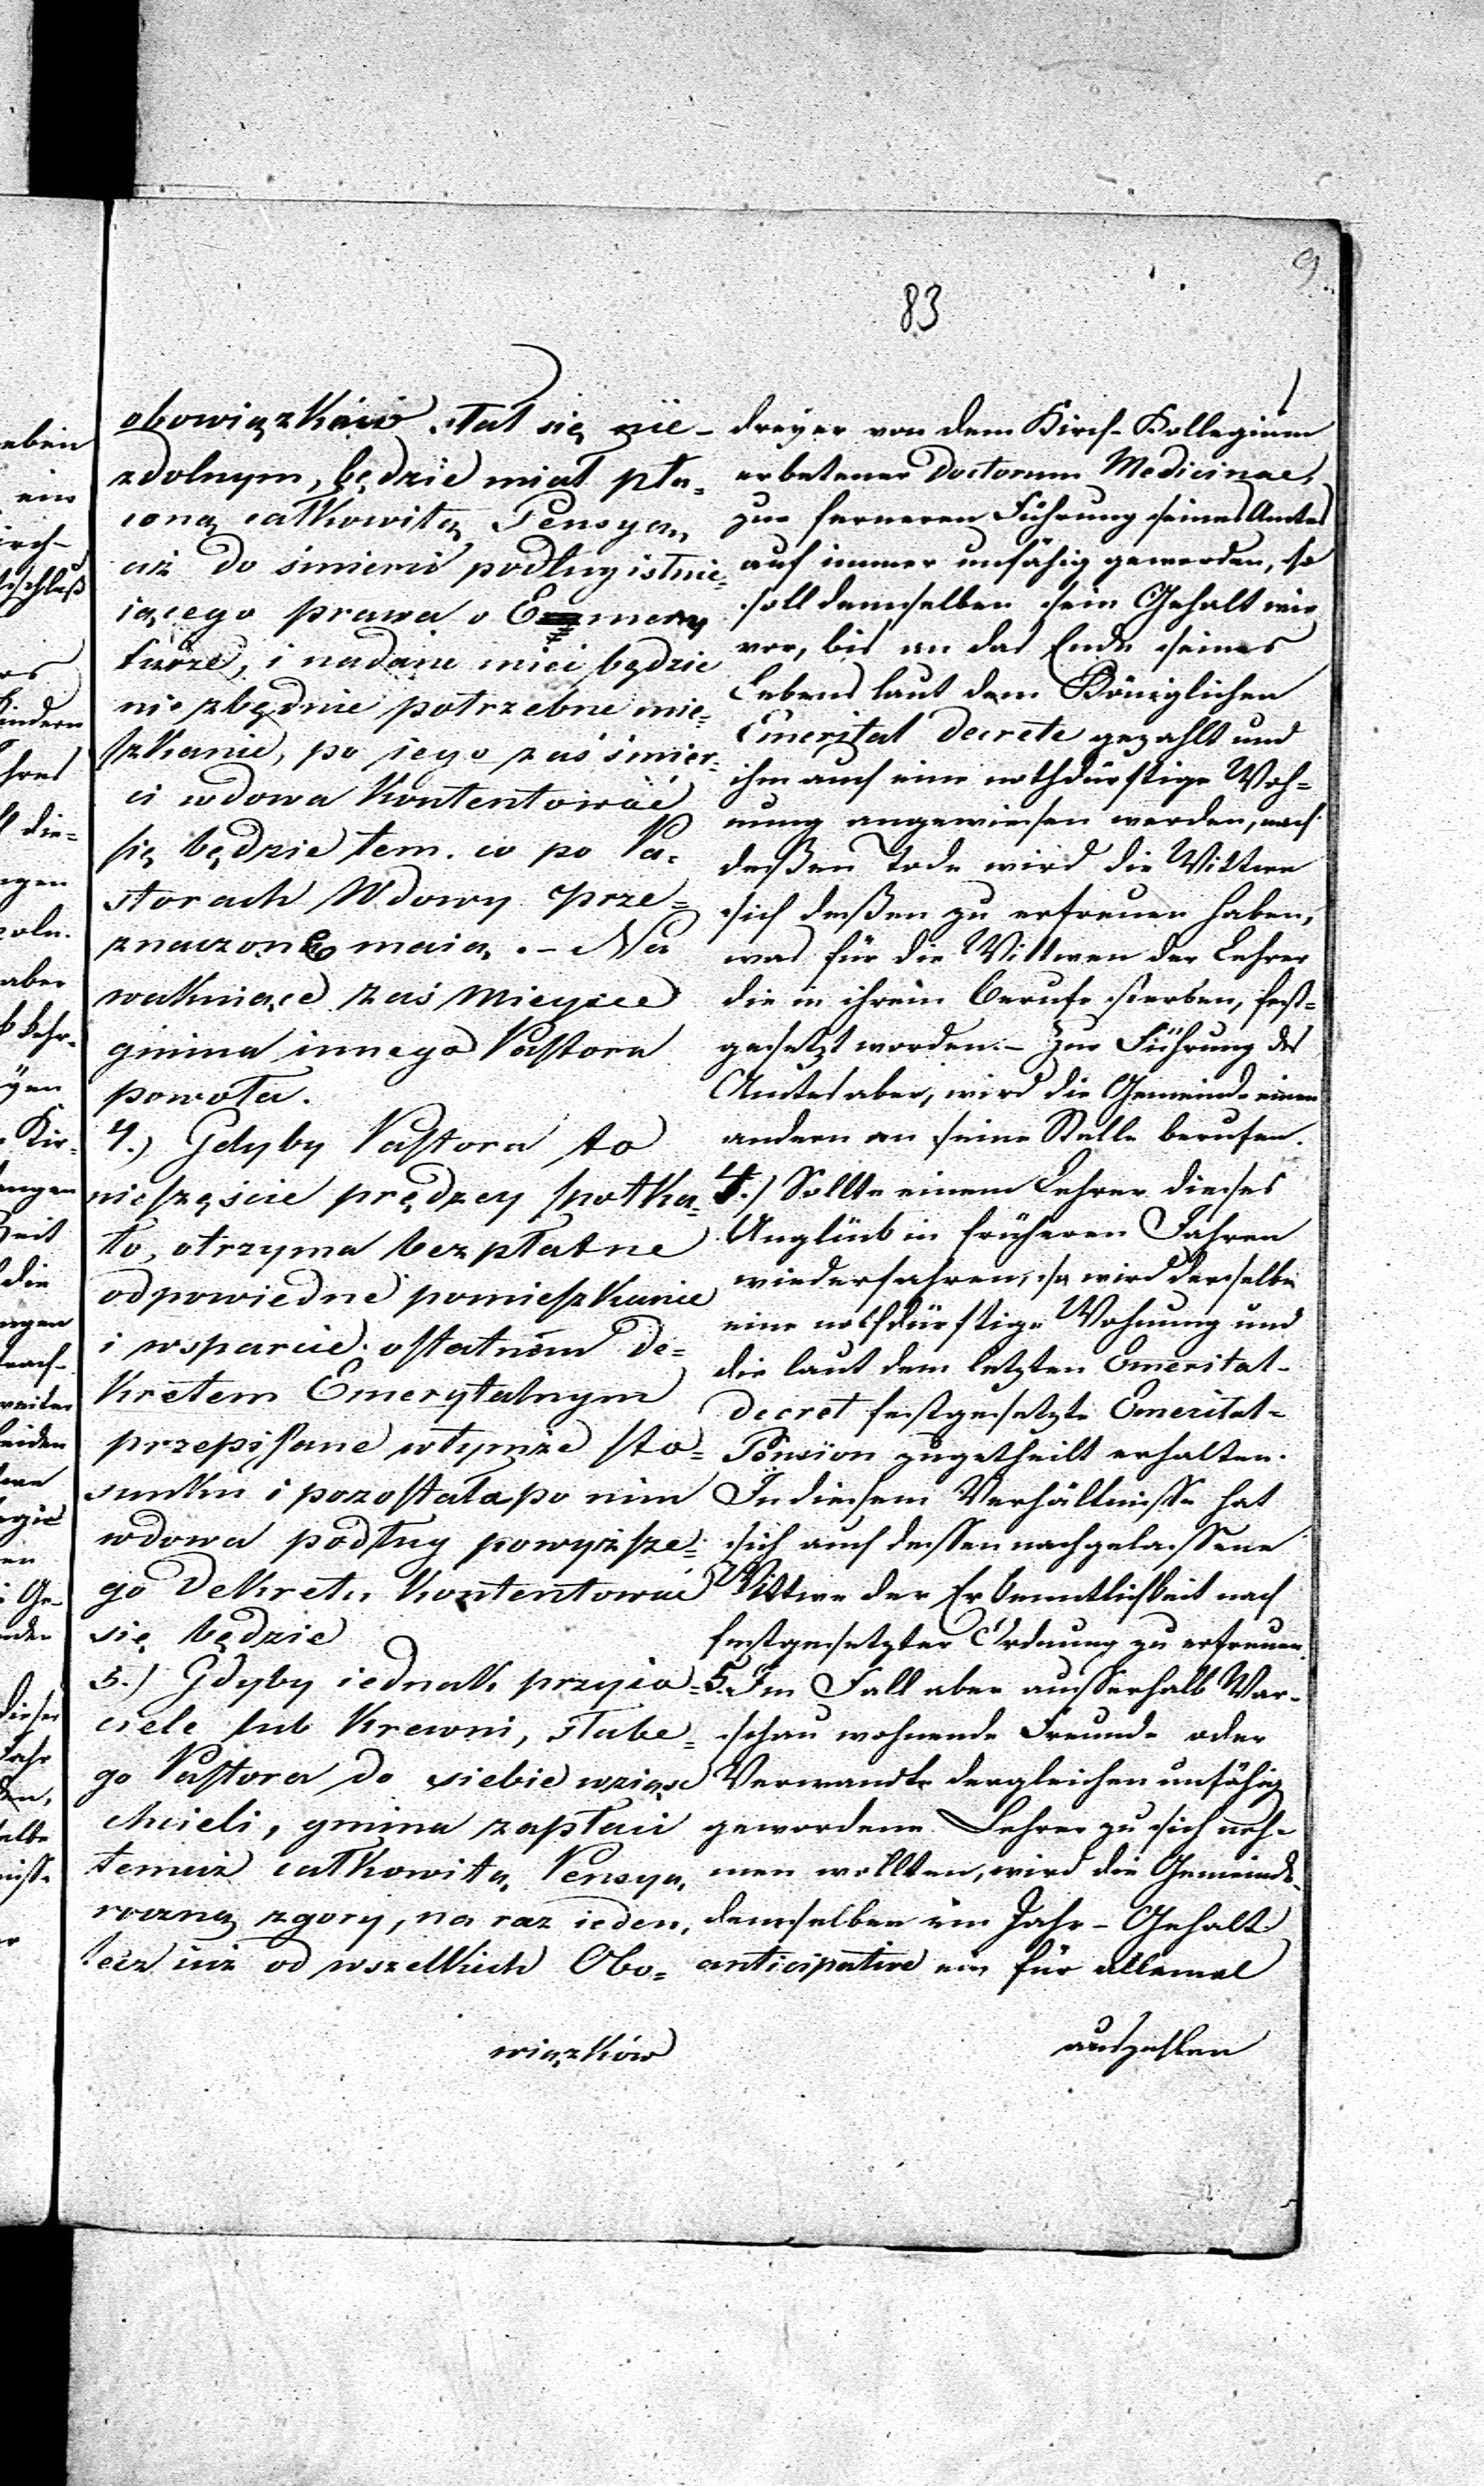 83
9
obowiązków stał się nie-
zdolnym, będzie miał pła=
coną całkowitą Pensyą,
aż do śmierci podług istnie=
iącego prawa o Emery
turze, i nadane mieć będzie
niezbędnie potrzebne mie=
szkanie, po iego zaś śmier=
ci wdowa kontentować
się będzie tem. co po Pa=
storach Wdowy prze=
znaczone maią. – Na
wakuiące zaś Mieysce
gmina innego Pastora
powoła.
4.) Gdyby Pastora to
nieszęście prędzey spotka=
ło, otrzyma bezpłatne
odpowiedne pomieszkanie
i wsparcie. ostatniem De=
kretem Emerytalnym
przepisane wtymże sto=
sunku i pozostała po nim
wdowa podług powyższe=
go Dekretu kontentować
się będzie
5.) Gdyby iednak przyia=
ciele lub Krewni, słabe=
go Pastora do siebie wziąść
chcieli, gmina zapłaci
temuż całkowitą Pensyą
roczną zgory, na raz ieden,
lecz iuż od wszelkich Obo=
wiązków
dreyer von dem Kirch-Kollegium
erbetener Doctorum Medicinae,
zur ferneren Führung seines Amtes
auf immer unfähig geworden, so
soll demselben sein Gehalt wie
vor, bis an das Ende seines
Lebens laut dem Königlichen
Emerital Decrete gezahlt und
ihm auch eine nothdürftige Woh=
nung angewiesen werden, nach
deßen Tode wird die Wittwe
sich deßen zu erfreuen haben,
was für die Wittwen der Lehrer
die in ihrem Berufe sterben, fest=
gesetzt worden. – Zur Führung des
Amtes aber, wird die Gemeinde einen
andern an seine Stelle berufen.
4./ Sollte einem Lehrer dieses
Unglück in früheren Jahren
wiederfahren, so wird derselbe
eine nothdürftige Wohnung und
die laut dem letzten Emerital-
Decret festgesetzte Emerital=
Pension zugetheilt erhalten.
In diesem Verhältnisse hat
sich auch dessen nachgelassene
Wittwe der Erkenntlichkeit nach
festgesetzter Ordnung zu erfreuen.
5. Im Fall aber ausserhalb War-
schau wohnende Freunde oder
Verwandte dergleichen unfähig
gewordene Lehrer zu sich neh=
men wollten, wird die Gemeinde
demselben ein Jahr-Gehalt
anticipative ein für allemal
auszahlen